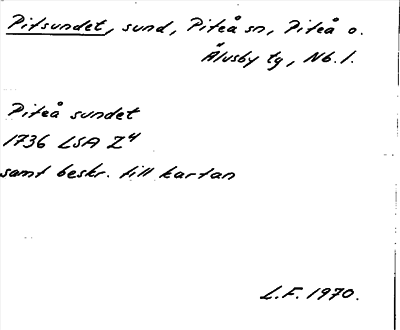 Pitsundet, sund, Piteå sn, Piteå o.
Älvsby tg, Nb. l.
Piteå sundet
1736 LSA Z4
samt beskr. till kartan
L.F. 1970.